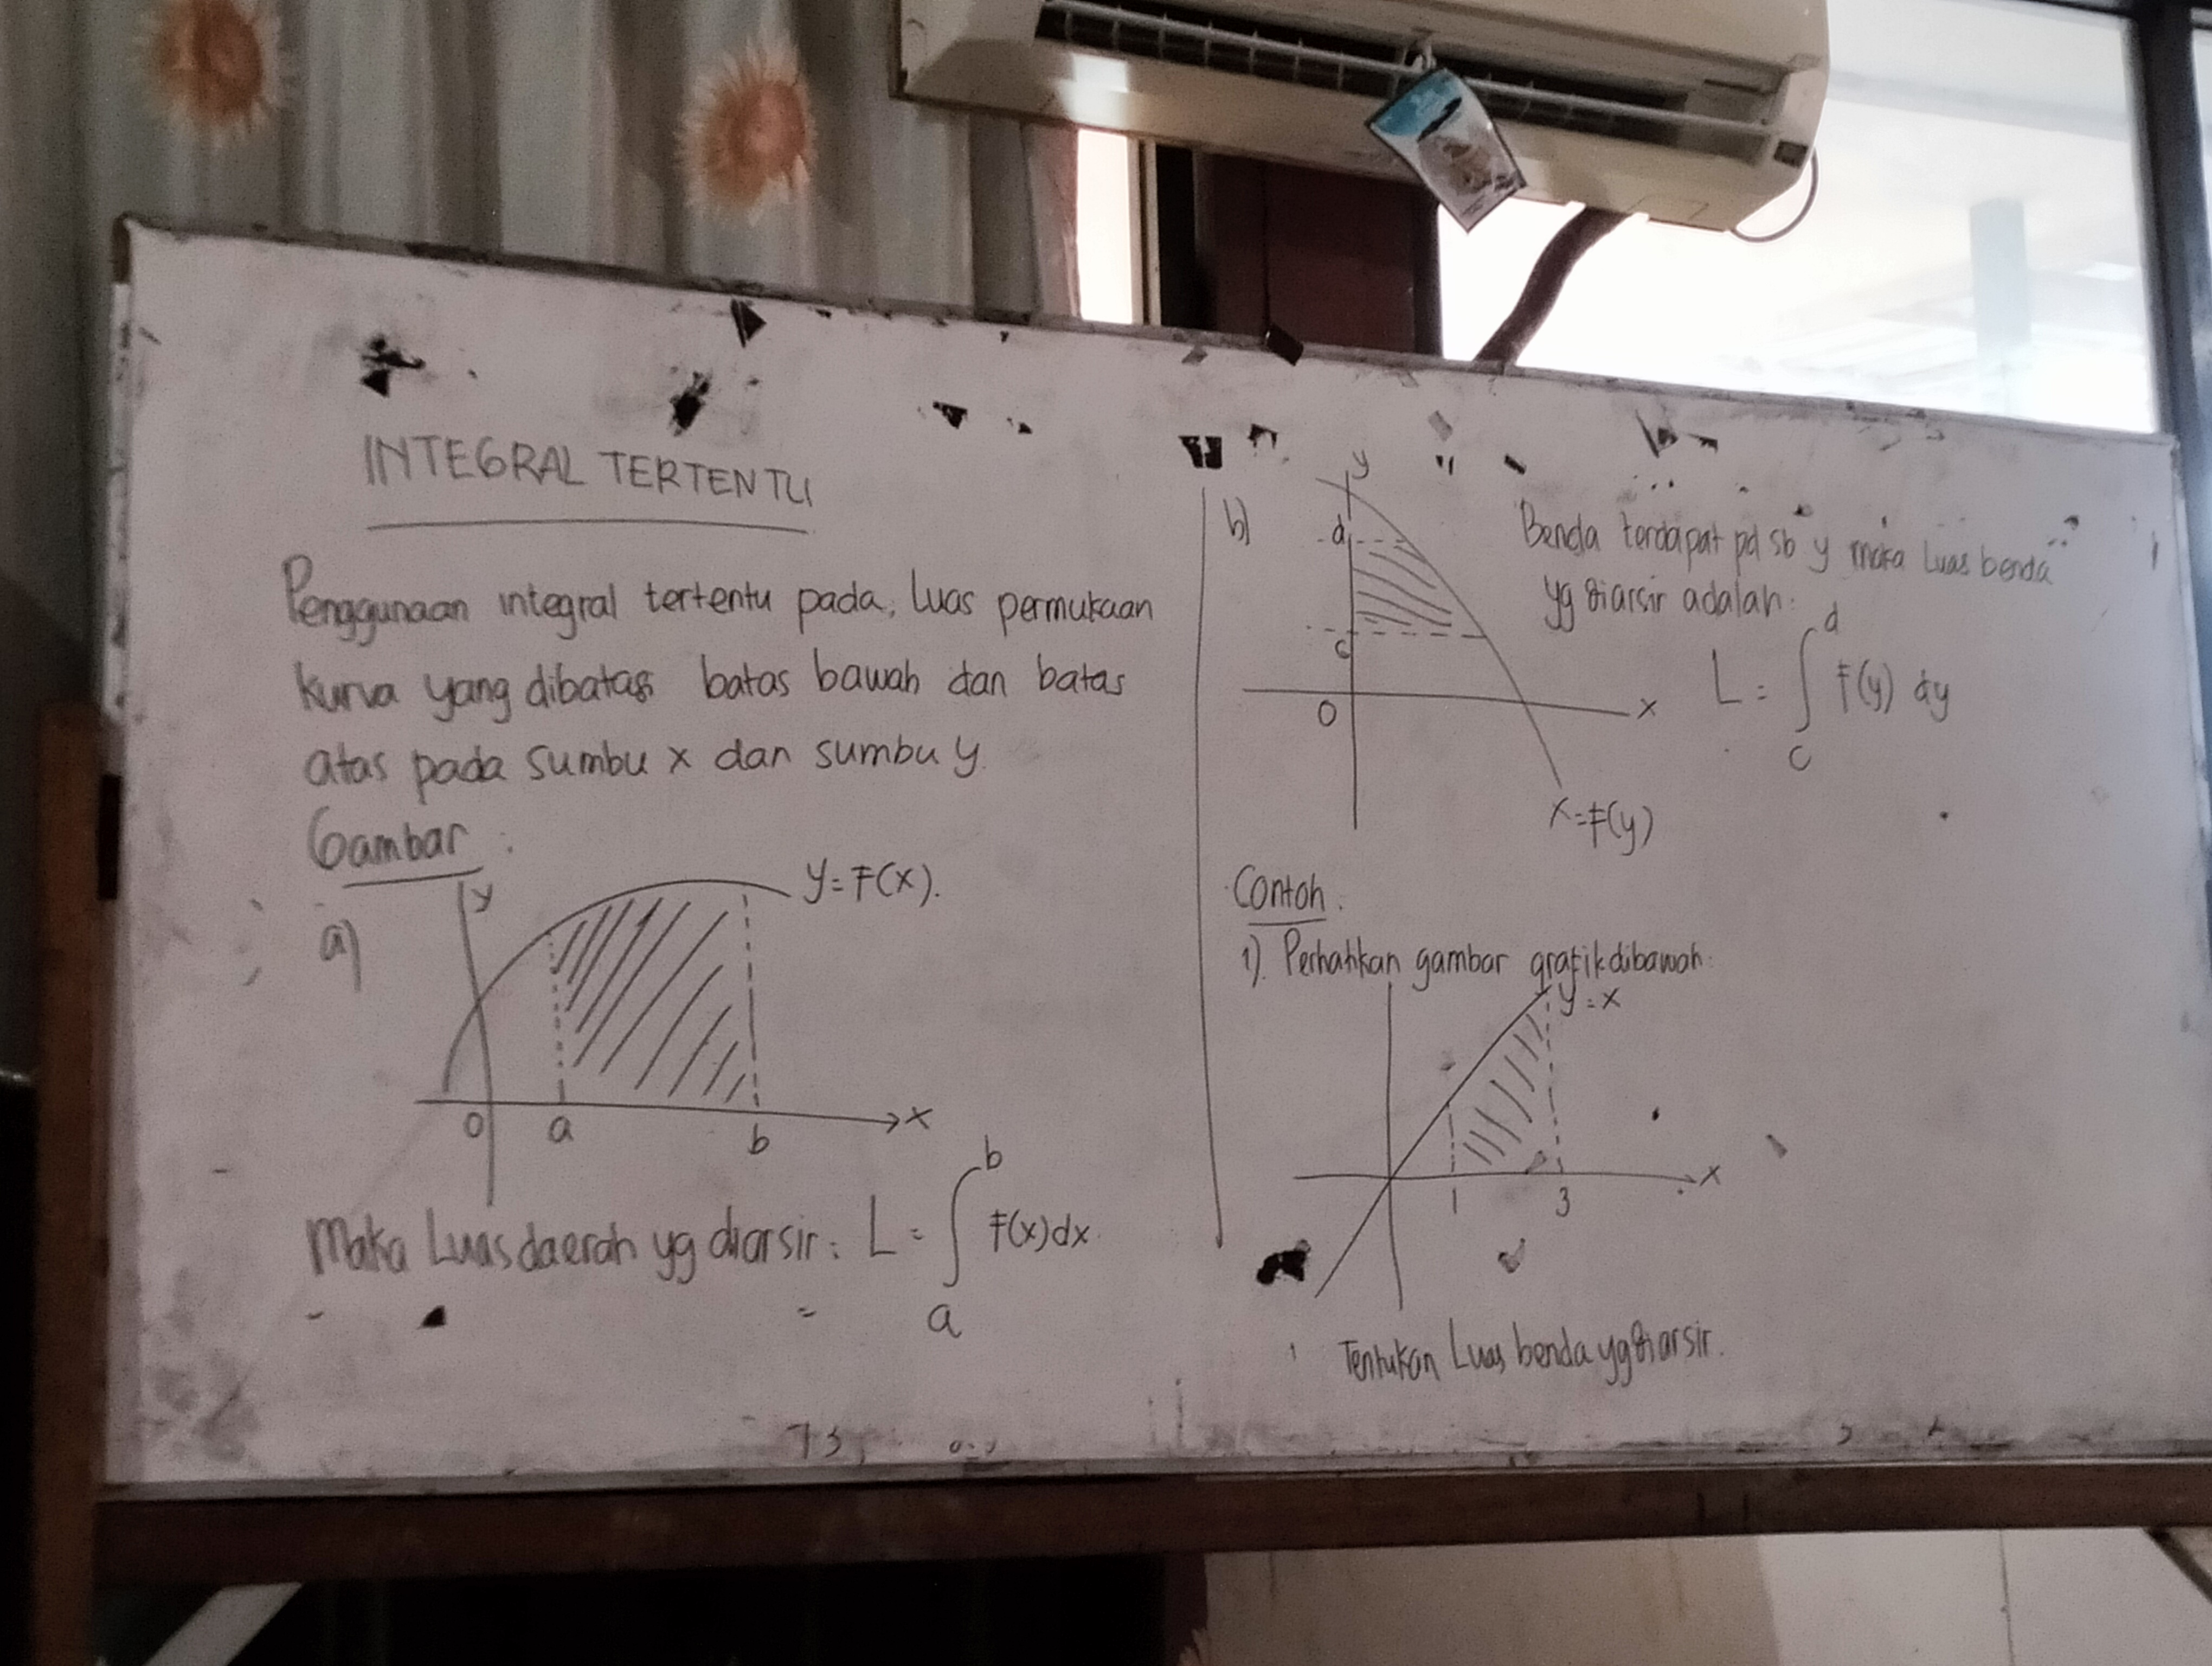 INTEGRAL TERTENTU
Penggunaan integral tertentu pada, luas permukaan
kurva yang dibatasi batas bawah dan batas
atas pada sumbu x dan sumbu y.
Gambar :
a)
y
y = F(x).
0 a b x
Maka Luas daerah yg diarsir : L = ∫_a^b F(x) dx.
b)
y
d
c
0 x
x = F(y)
Benda terdapat pd sb y maka Luas benda
yg diarsir adalah :
L = ∫_c^d F(y) dy
Contoh.
1). Perhatikan gambar grafik dibawah.
y = x
1 3 x
Tentukan Luas benda yg diarsir.